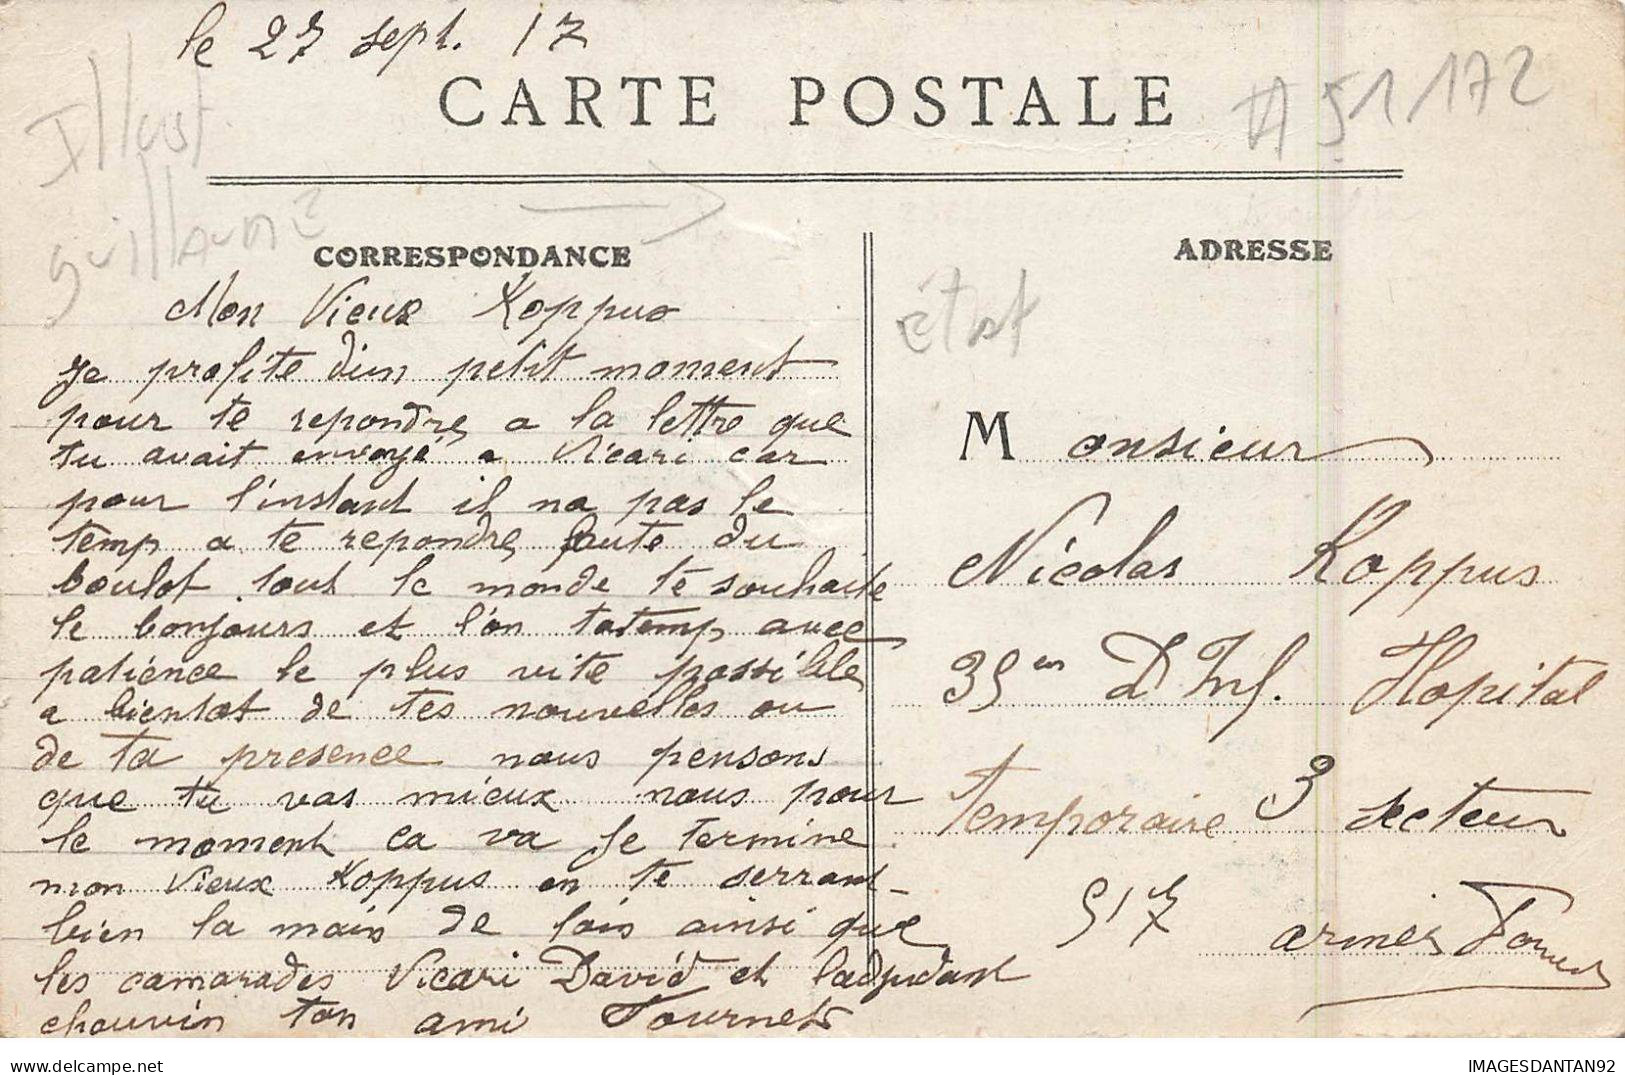 le 27 sept. 17
CARTE POSTALE
A 51172
Illust
guillaume
CORRESPONDANCE
Mon Vieux Koppus
Je profite d'un petit moment
pour te repondre a la lettre que
tu avait envoyé a Vicari car
pour l'instant il na pas le
temp a te repondre faute du
boulot tout le monde te souhaite
le bonjours et l'on tatemp avec
patience le plus vite possible
a bientot de tes nouvelles ou
de ta presence nous pensons
que tu vas mieux nous pour
le moment ca va Je termine
mon Vieux Koppus en te serrant
bien la main de loin ainsi que
les camarades Vicari David et ladjudant
chauvin ton ami Tournet
ADRESSE
état
Monsieur
Nicolas Koppus
Inf. Hopital
temporaire 3 secteur
517
armée Tournet
IMAGESDANTAN92